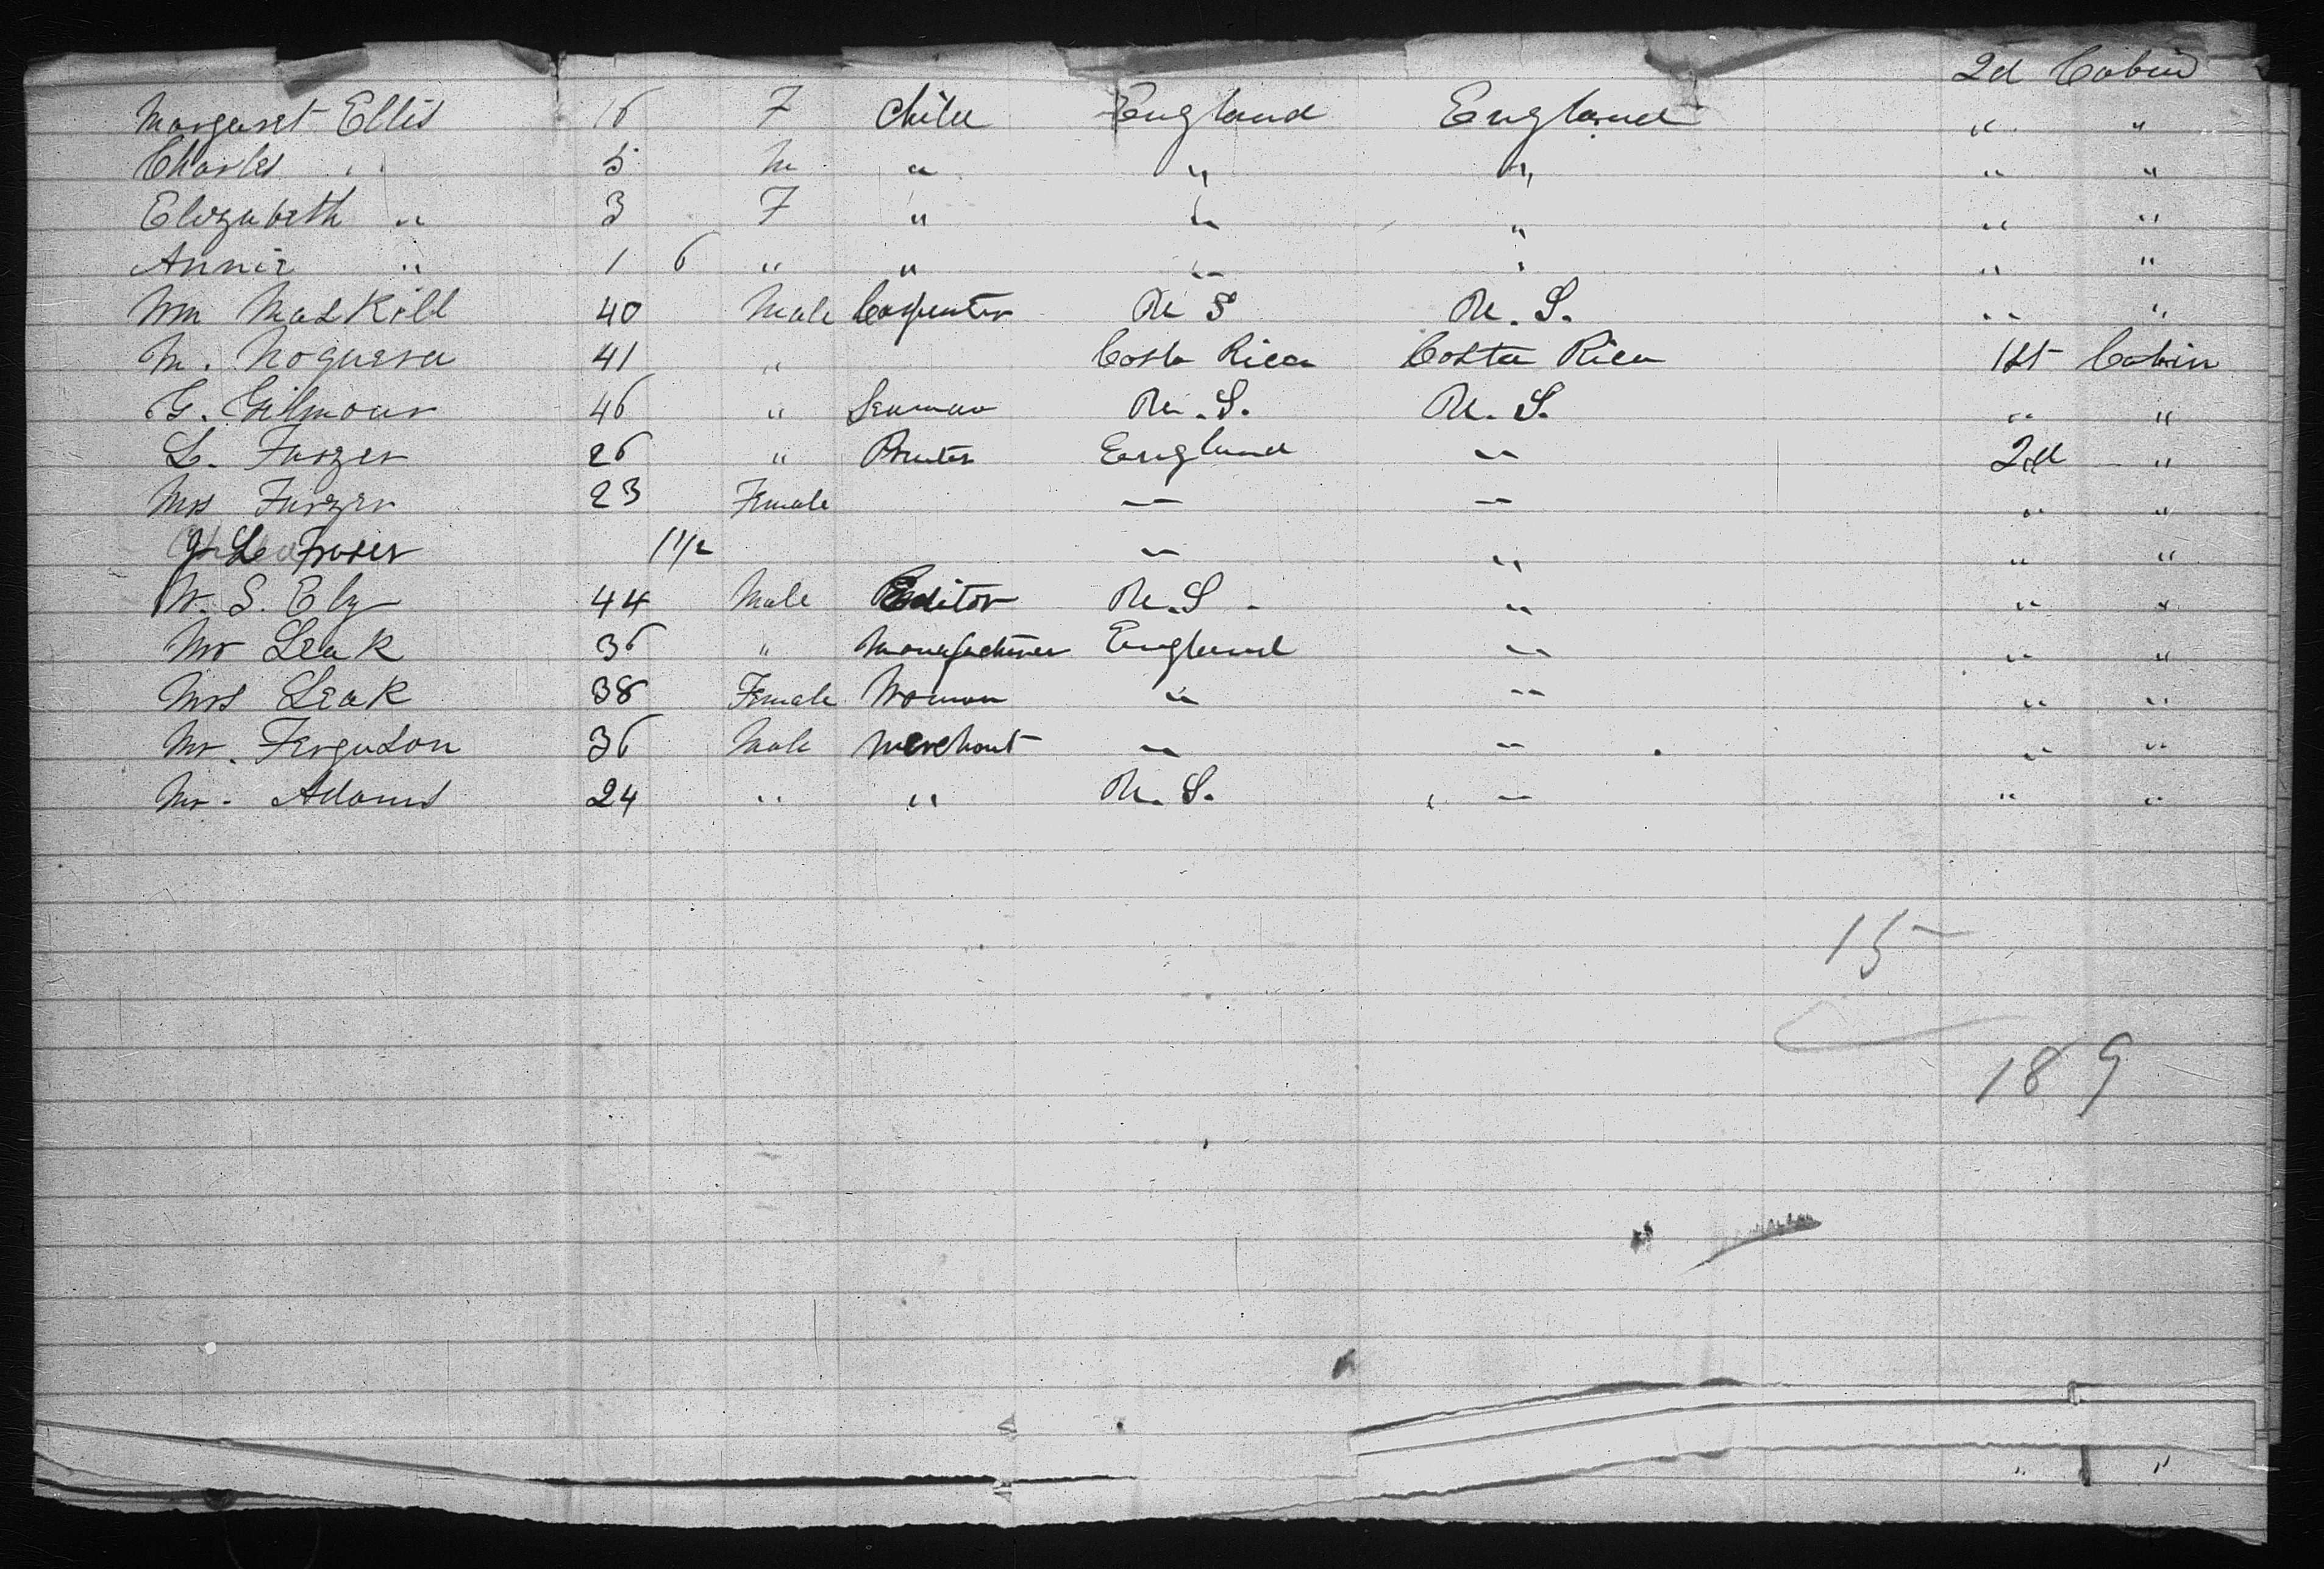 2d Cabin
Margaret Ellis 16 F Child England England " "
Charles " 5 M " " " " "
Elizabeth " 3 F " " " " "
Annie " 1 6 " " " " " "
Wm Maskill 40 Male Carpenter U S U. S. " "
M. Noguera 41 " Costa Rica Costa Rica 1st Cabin
G. Gilmour 46 " Seaman U. S. U. S. " "
L. Furzer 26 " Printer England " 2d "
Mrs Furzer 23 Female " " " "
L Fraser 1 1/2 " " " "
W. S. Ely 44 Male Editor U. S. " " "
Mr Leak 36 " Manufacturer England " " "
Mrs Leak 38 Female Woman " " " "
Mr. Ferguson 36 Male Merchant " " " "
Mr. Adams 24 " " U. S. " " "
15
189
" "